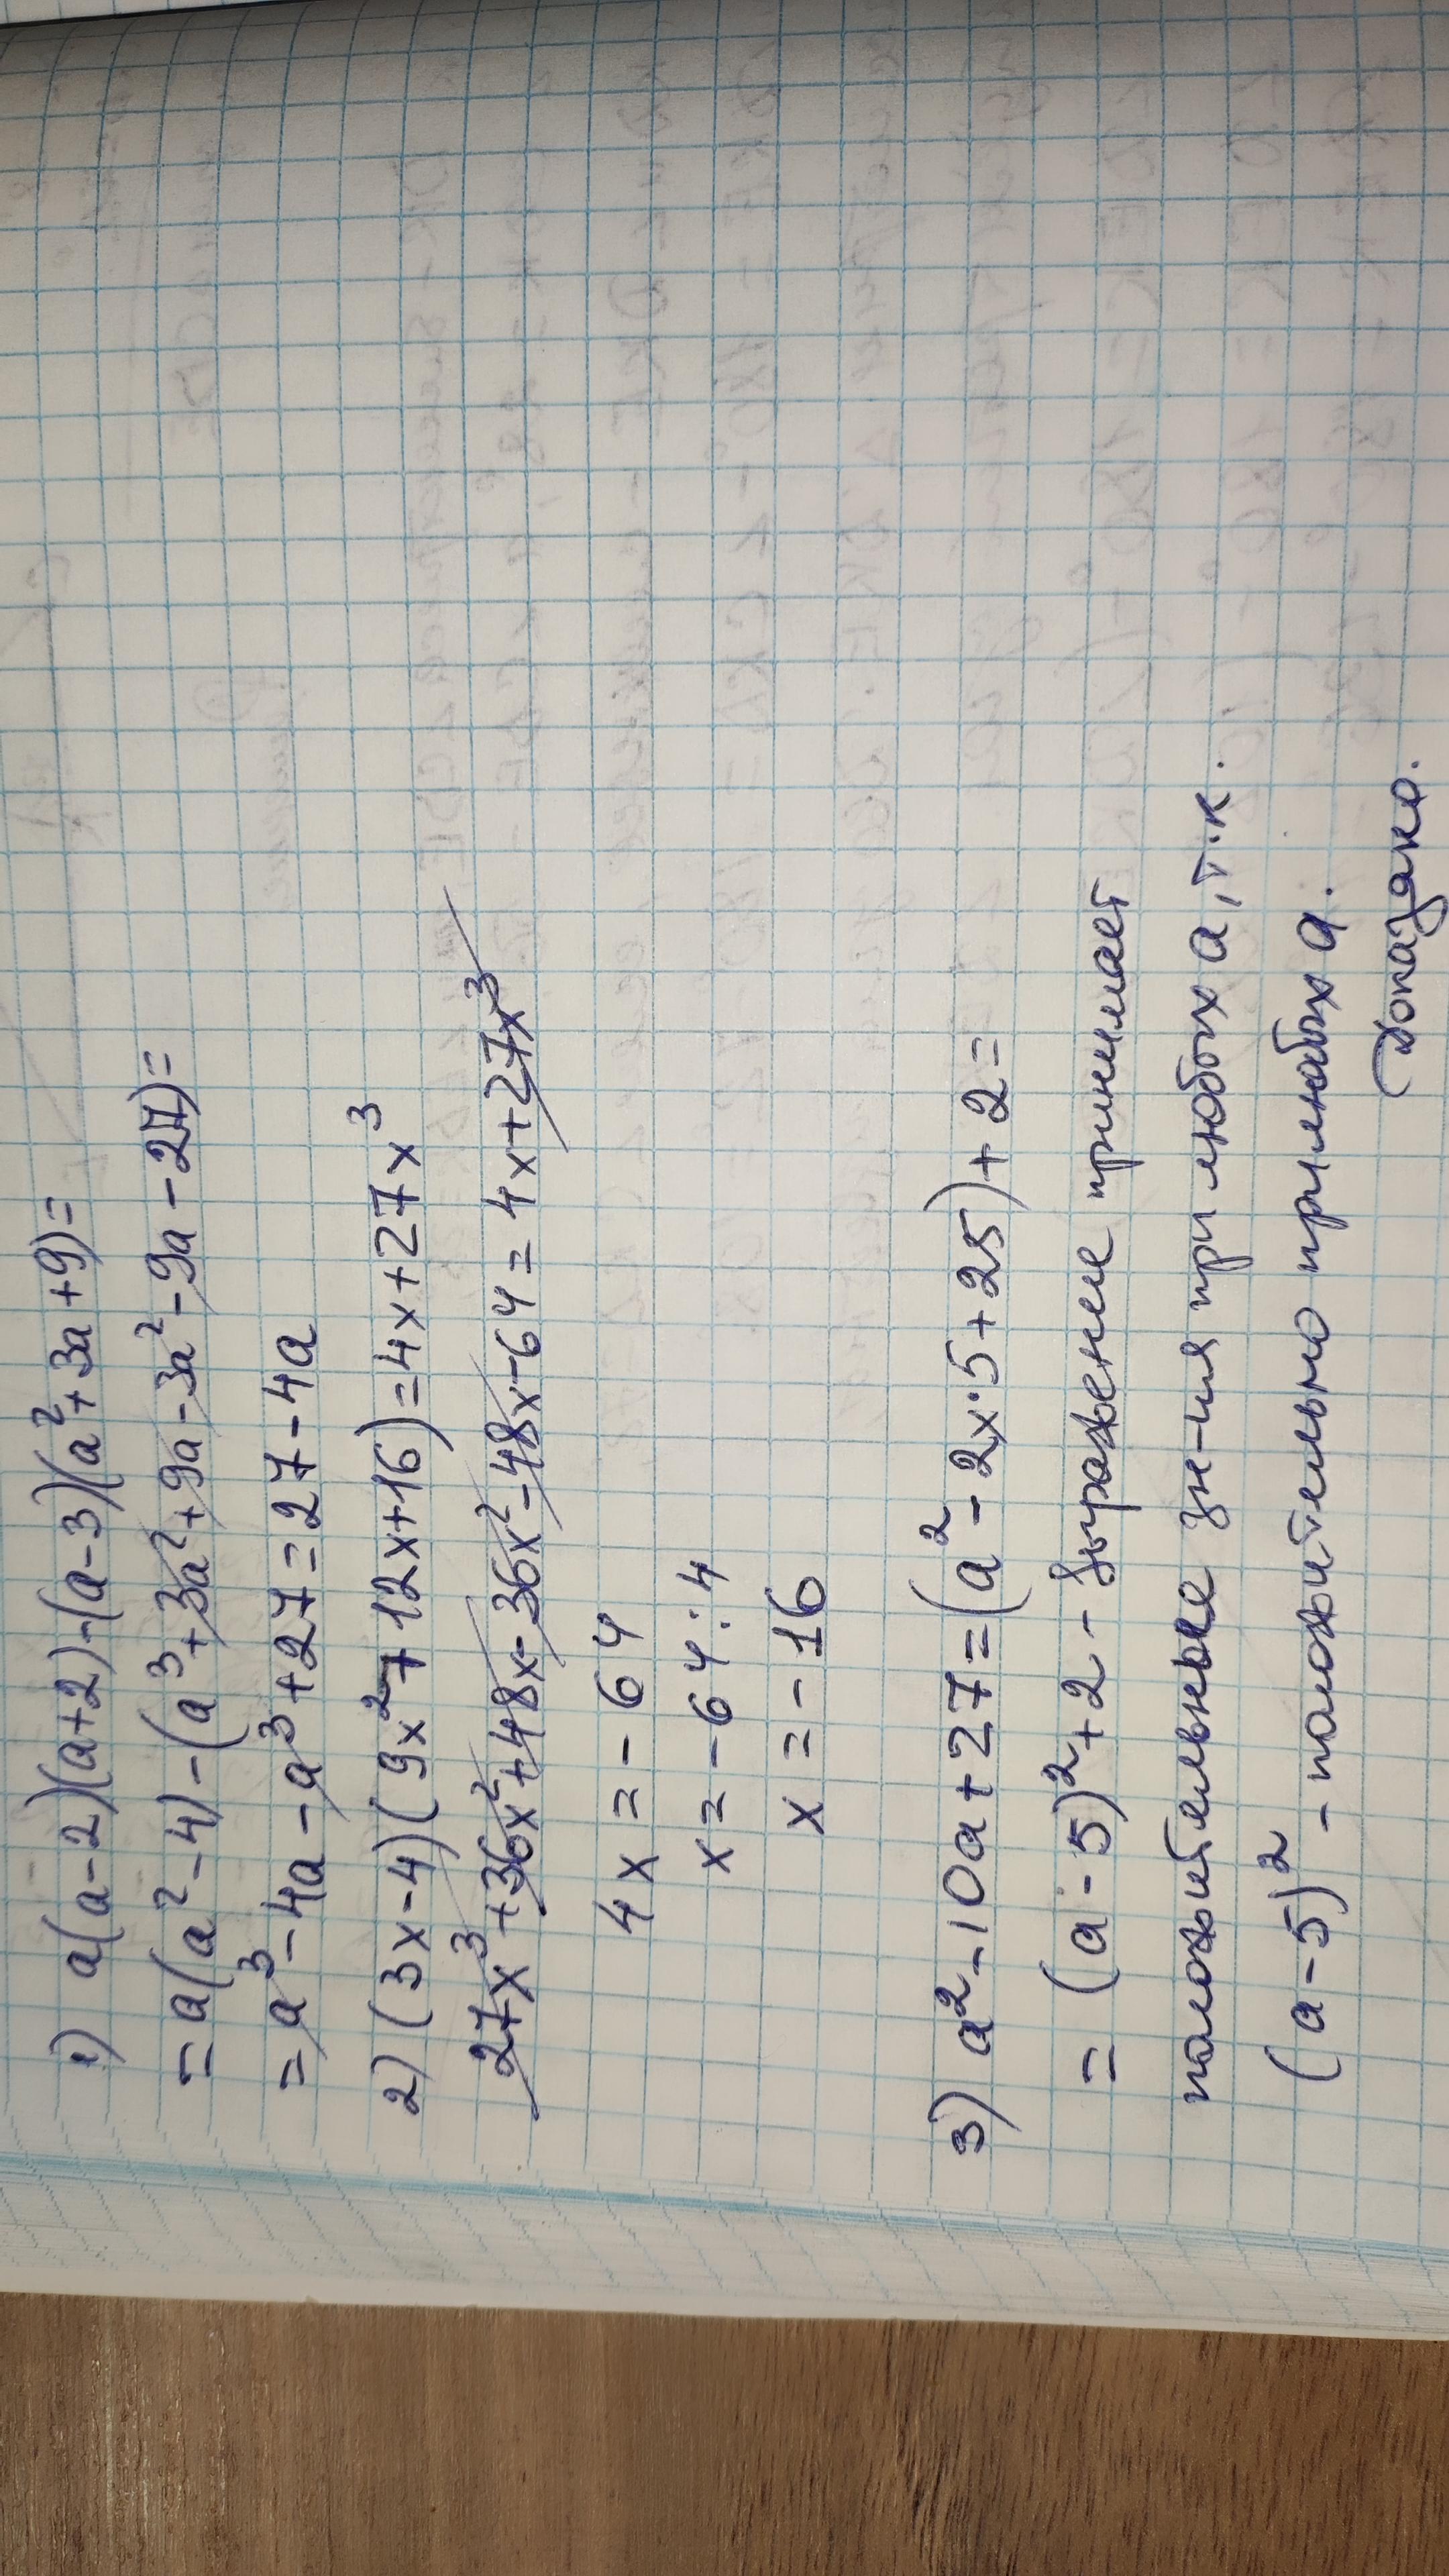 1) a(a-2)(a+2)-(a-3)(a²+3a+9)=
=a(a²-4)-(a³+3a²+9a-3a²-9a-27)=
=a³-4a-a³+27=27-4a
2) (3x-4)(9x²+12x+16)=4x+27x³
27x³+36x²+48x-36x²-48x-64=4x+27x³
4x=-64
x=-64:4
x=-16
3) a²-10a+27=(a²-2x·5+25)+2=
=(a-5)²+2 - выражение принимает
положительные зн-ия при любых a, т.к.
(a-5)² - положительно при любых a.
Доказано.